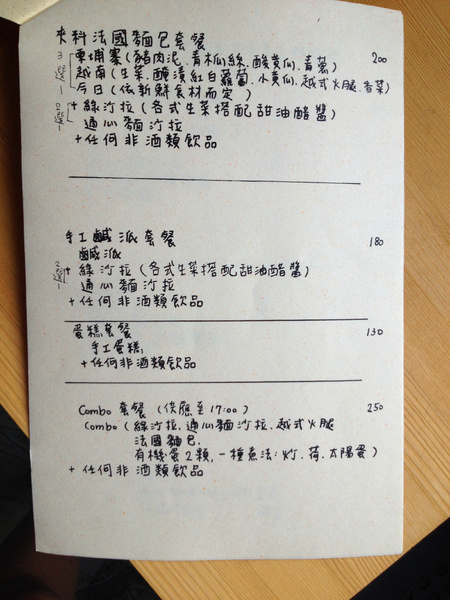 夾料法國麵包套餐 200
3選1 柬埔寨(豬肉泥、青木瓜絲、酸黄瓜、青蔥)
越南(生菜、醃漬紅白蘿蔔、小黄瓜、越式火腿、香菜)
今日(依新鮮食材而定)
2選1 + 綠沙拉(各式生菜搭配甜油醋醬)
通心麵沙拉
+任何非酒類飲品
手工鹹派套餐 180
鹹派
2選1 + 綠沙拉(各式生菜搭配甜油醋醬)
通心麵沙拉
+任何非酒類飲品
蛋糕套餐 130
手工蛋糕
+任何非酒類飲品
Combo 套餐 (供應至17:00) 250
Combo (綠沙拉、通心麵沙拉、越式火腿
法國麵包、
有機蛋2顆,一種煮法:炒、荷、太陽蛋)
+任何非酒類飲品